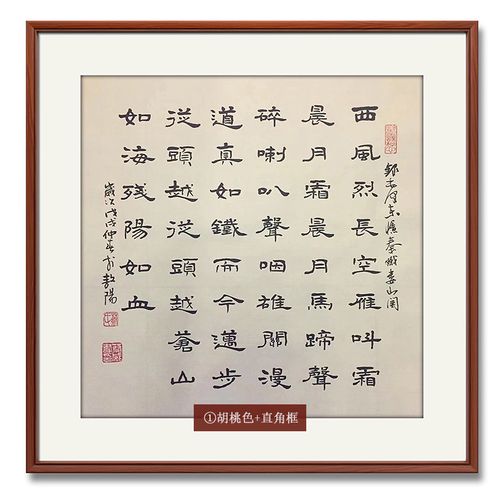 錄毛澤東憶秦娥婁山関
西風烈長空雁叫霜
晨月霜晨月馬蹄聲
碎喇叭聲咽雄關漫
道真如鐵而今邁步
從頭越從頭越蒼山
如海残陽如血
歲次戊戌仲
①胡桃色+直角框